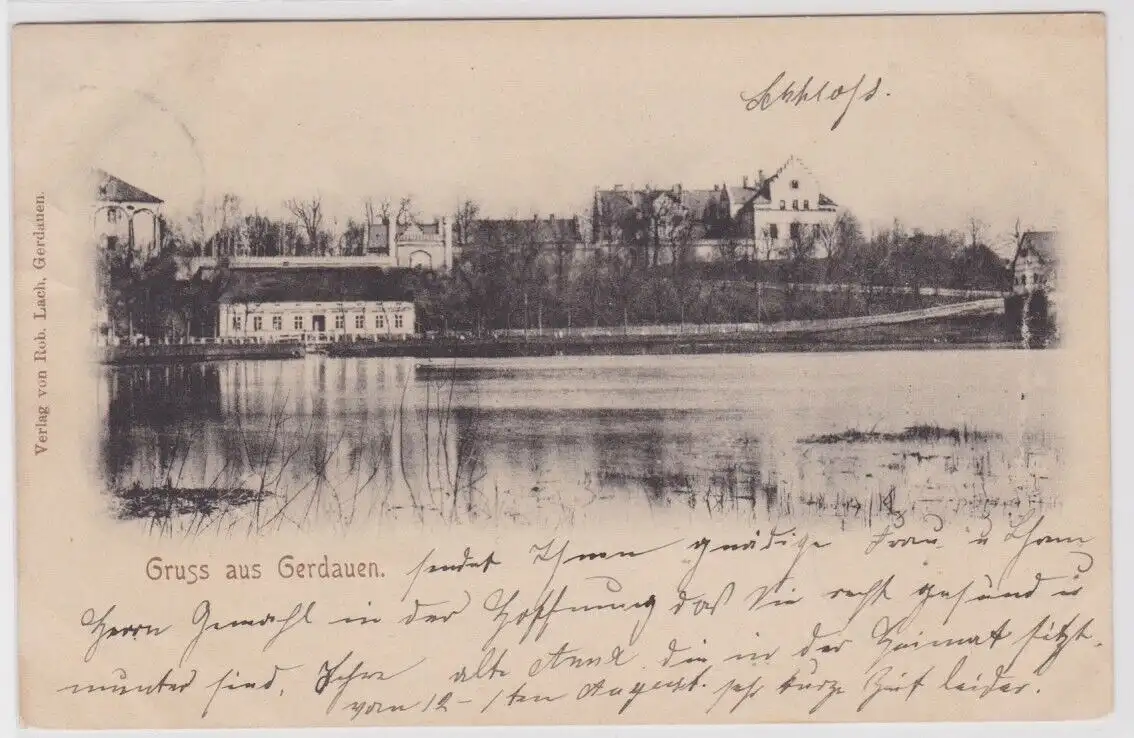 Schloss.
Verlag von Rob. Lach, Gerdauen.
Gruss aus Gerdauen.
sendet Ihnen gnädige Frau u Ihrem
Herrn Gemahl in der Hoffnung daß Sie recht gesund u
munter sind, Ihre alte Anna die in der Heimat sitzt.
vom 12 - 1ten August. sehr kurze Zeit leider.